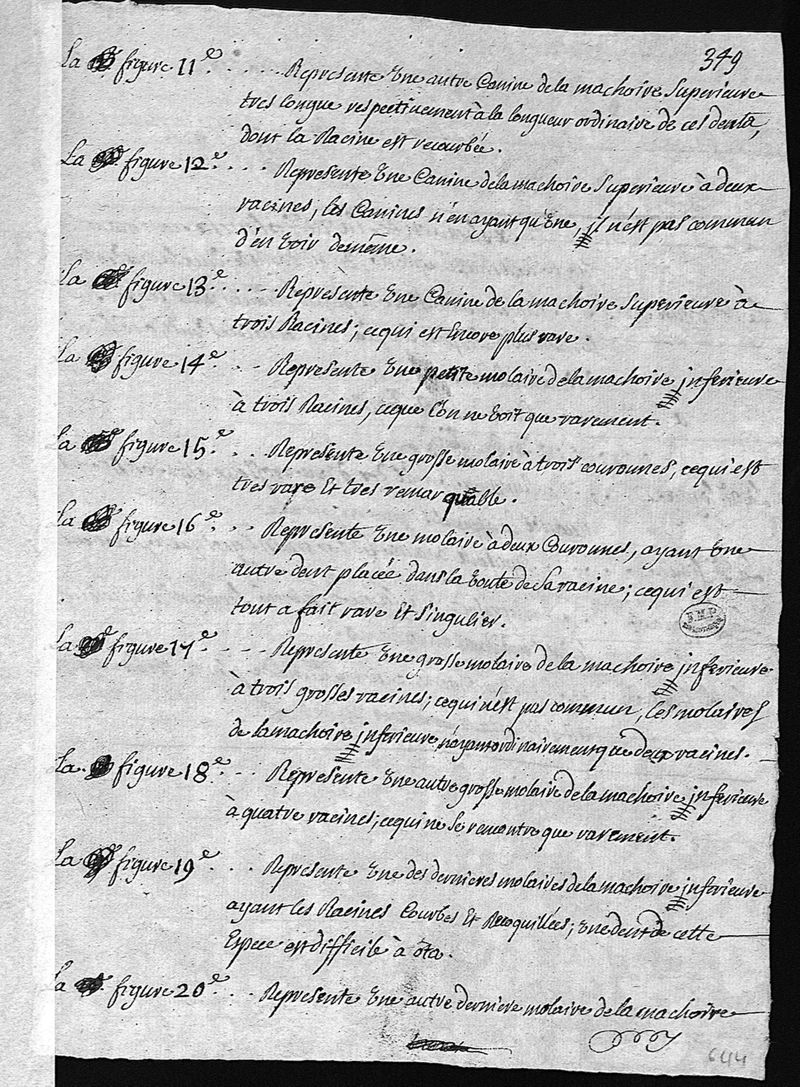 349
La figure 11e. .... Represente Une autre Canine de la machoire Superieure
tres longue respectivement à la longueur ordinaire de ces dents,
dont la Racine est recourbée.
La figure 12e. ... Represente Une Canine de la machoire Superieure à deux
racines, les Canines n'en ayant qu'Une, il n'est pas commun
d'en Voir de même.
La figure 13e. .... Represente Une Canine de la machoire Superieure à
trois Racines; ce qui est Encore plus rare.
La figure 14e. .. Represente Une petite molaire de la machoire inferieure
à trois Racines, ce que l'on ne Voit que rarement.
La figure 15e. .. Represente Une grosse molaire à trois couronnes, ce qui est
tres rare Et tres remarquable.
La figure 16e. .. Represente Une molaire à deux Couronnes, ayant Une
autre dent placée dans la Voute de Sa racine; ce qui est
tout a fait rare Et Singulier.
La figure 17e. .... Represente Une grosse molaire de la machoire inferieure
à trois grosses racines; ce qui n'est pas commun, les molaires
de la machoire inferieure n'ayant ordinairement que deux racines.
La figure 18e. ... Represente Une autre grosse molaire de la machoire inferieure
à quatre racines; ce qui ne se rencontre que rarement.
La figure 19e. ... Represente Une des dernieres molaires de la machoire inferieure
ayant les Racines Courbes Et Recoquillées; Une dent de cette
Espece est difficile à ôta.
La figure 20e. .. Represente Une autre derniere molaire de la machoire
644